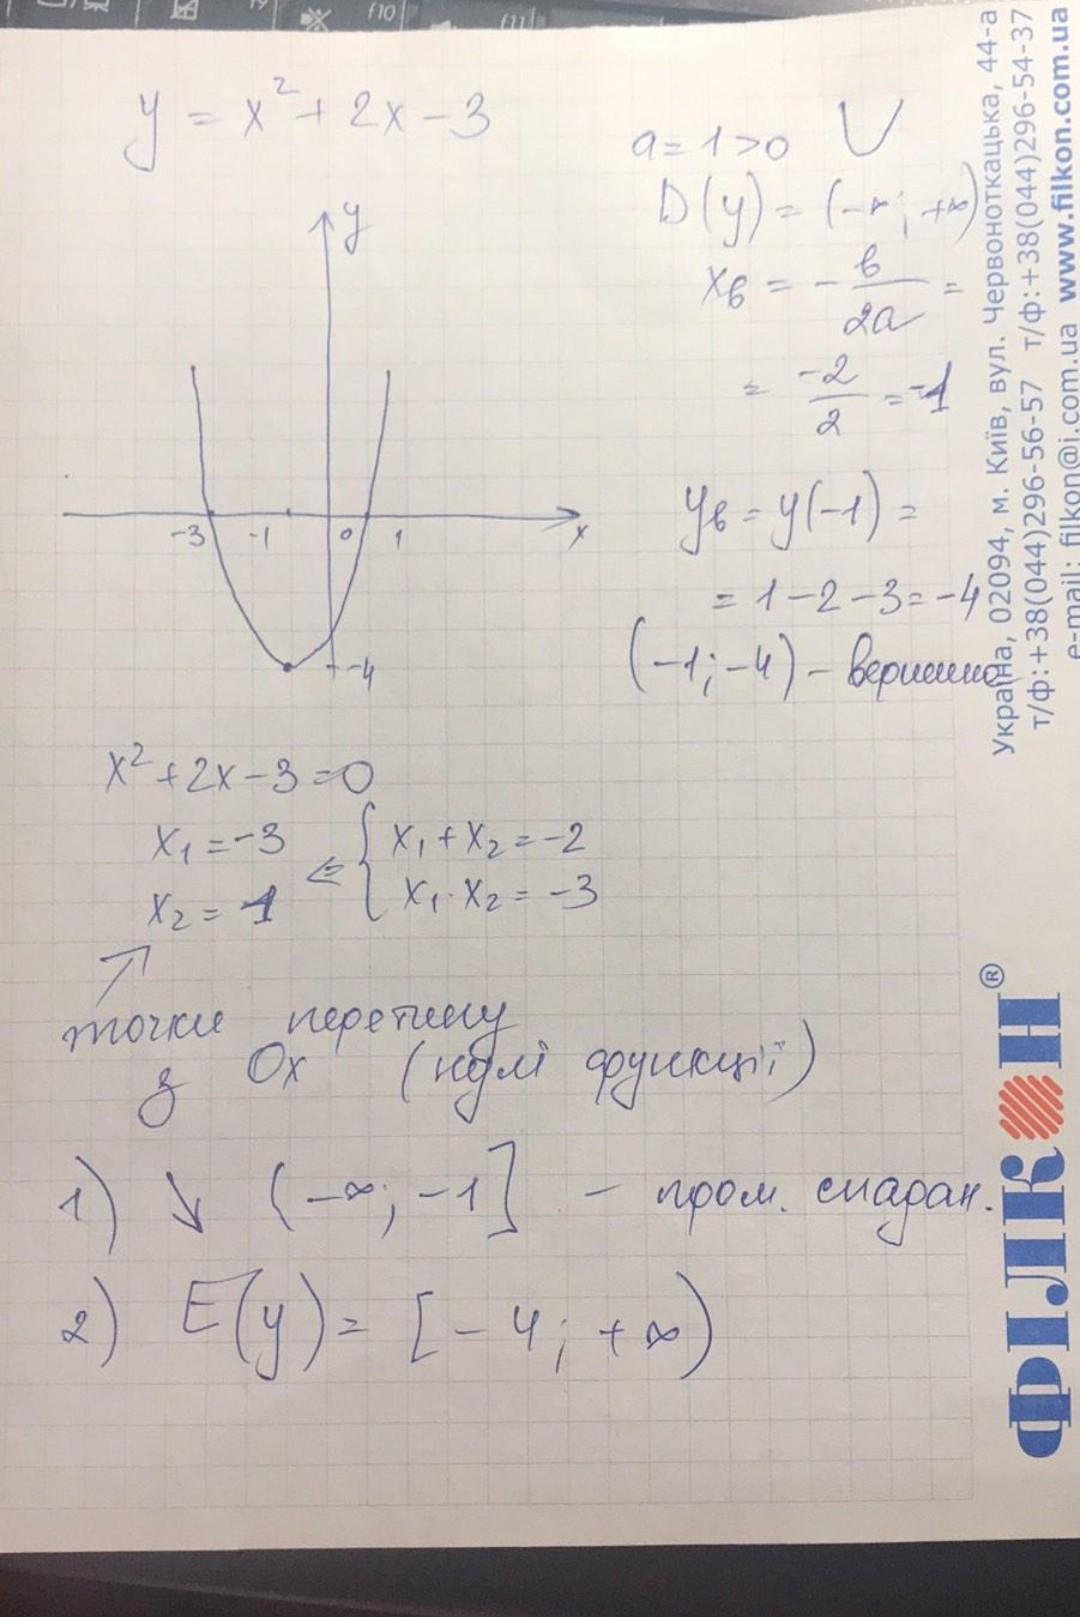 f9
f10
f11
y = x² + 2x - 3
a = 1 > 0
D(y) = (-∞; +∞)
xв = - в/2a =
= -2/2 = -1
y
-3 -1 0 1 x
-4
yв = y(-1) =
= 1 - 2 - 3 = -4
(-1; -4) - вершина
x² + 2x - 3 = 0
x₁ = -3 ⇐ { x₁ + x₂ = -2
x₂ = 1 x₁ · x₂ = -3
точки перетину
з Ox (нулі функції)
1) ↘ (-∞; -1] - пром. спадан.
2) E(y) = [-4; +∞)
Україна, 02094, м. Київ, вул. Червоноткацька, 44-а
т/ф:+38(044)296-56-57 т/ф:+38(044)296-54-37
e-mail: filkon@i.com.ua www.filkon.com.ua
ФІЛКОН®